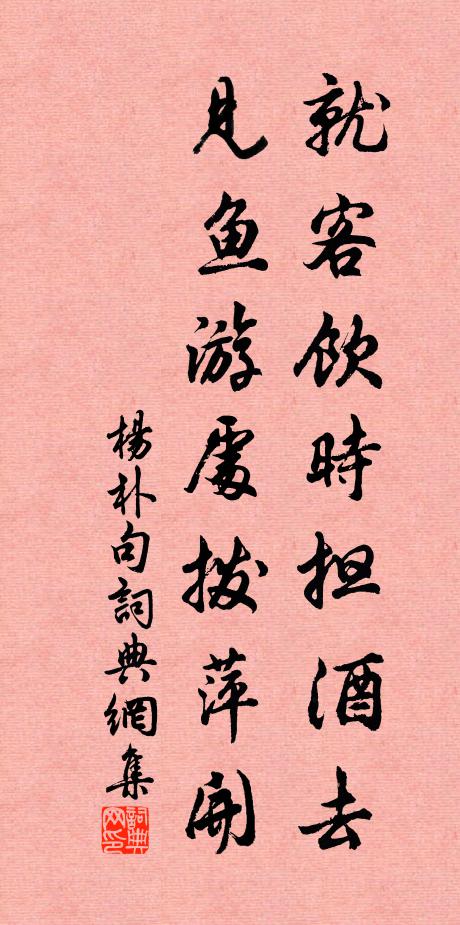 就客饮時担酒去
见鱼游處拨萍開
楊朴句詞典網集
詞典网印